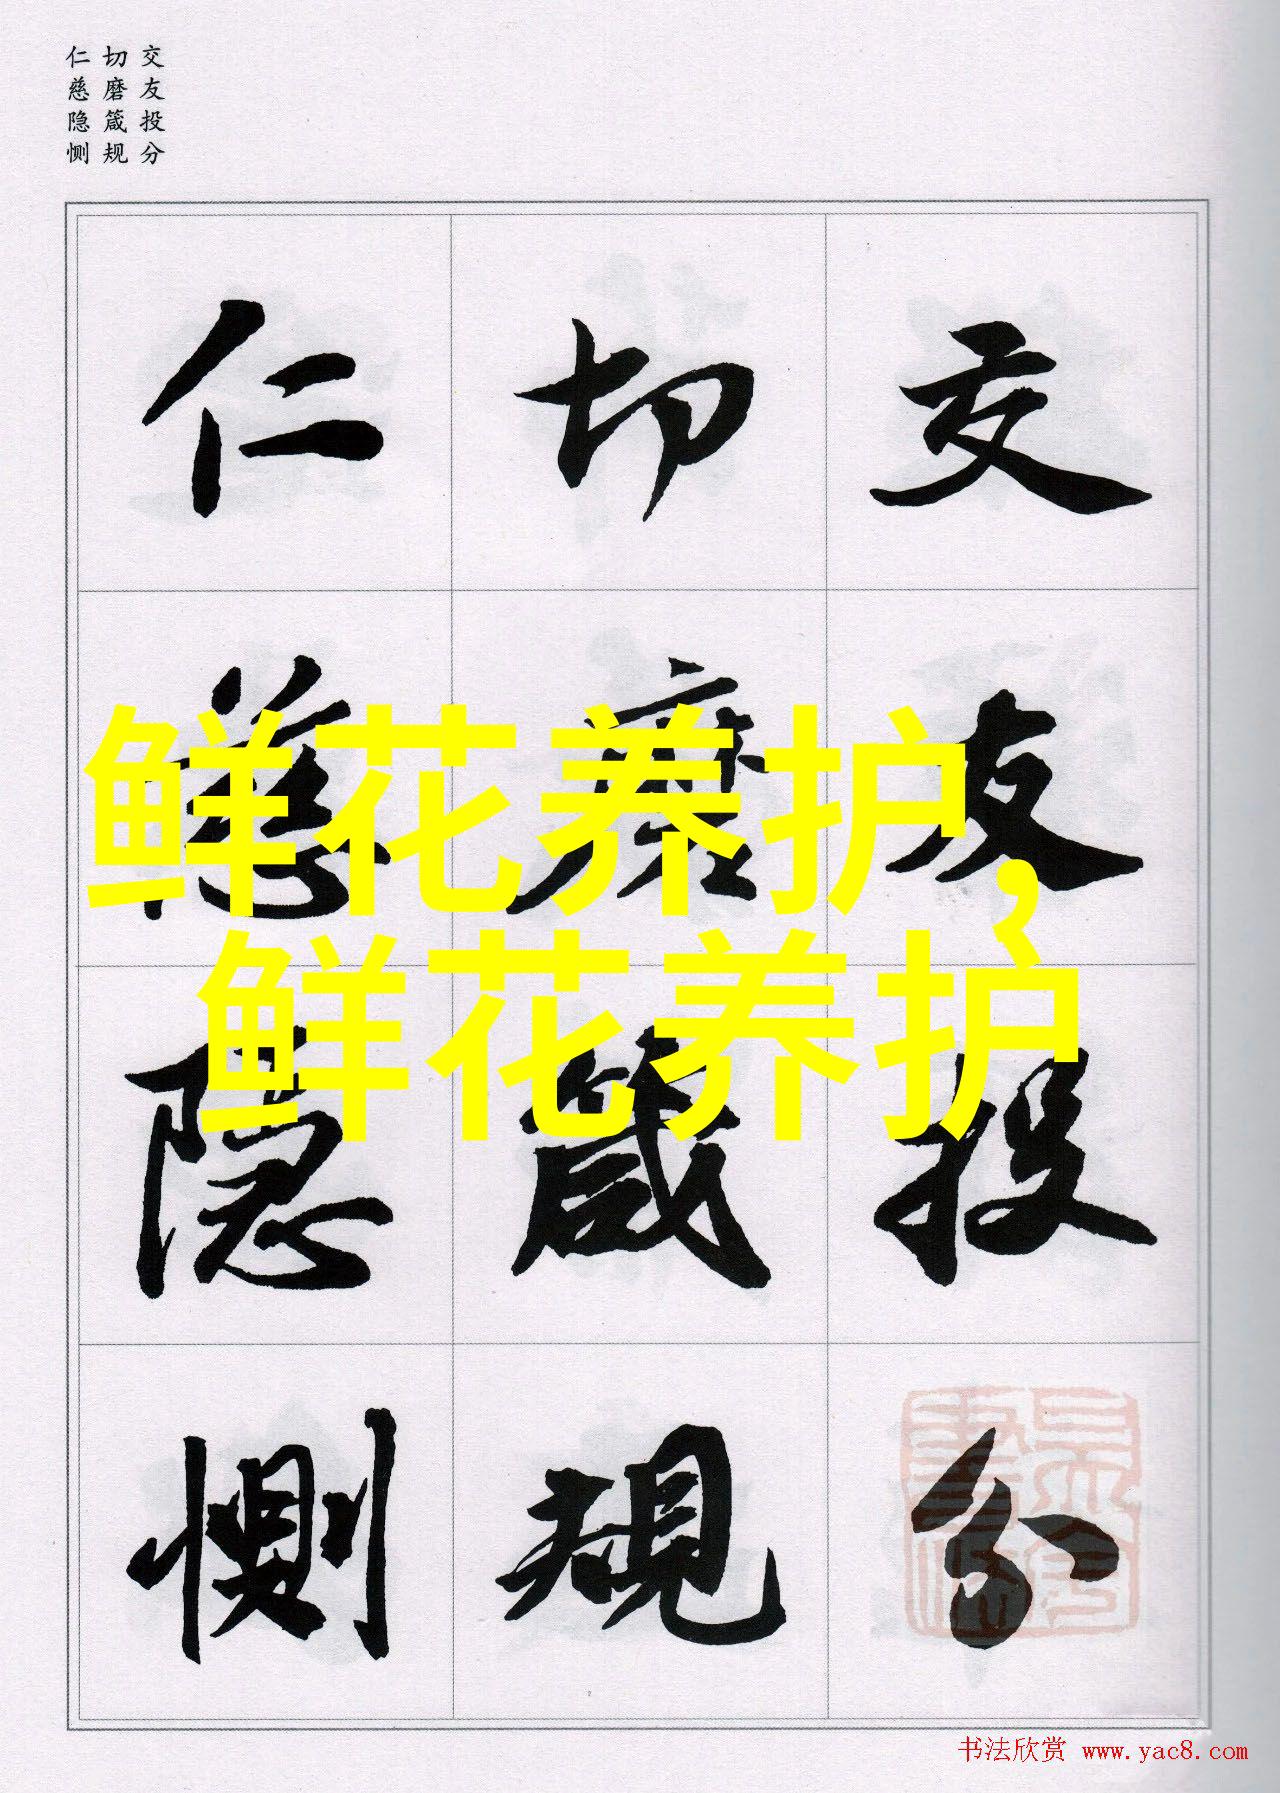 交友投分
切磨箴规
仁慈隐恻
交友投分
切磨箴規
仁慈隐恻
鲜花养护，
鲜花养护
书法欣赏 www.yac8.com